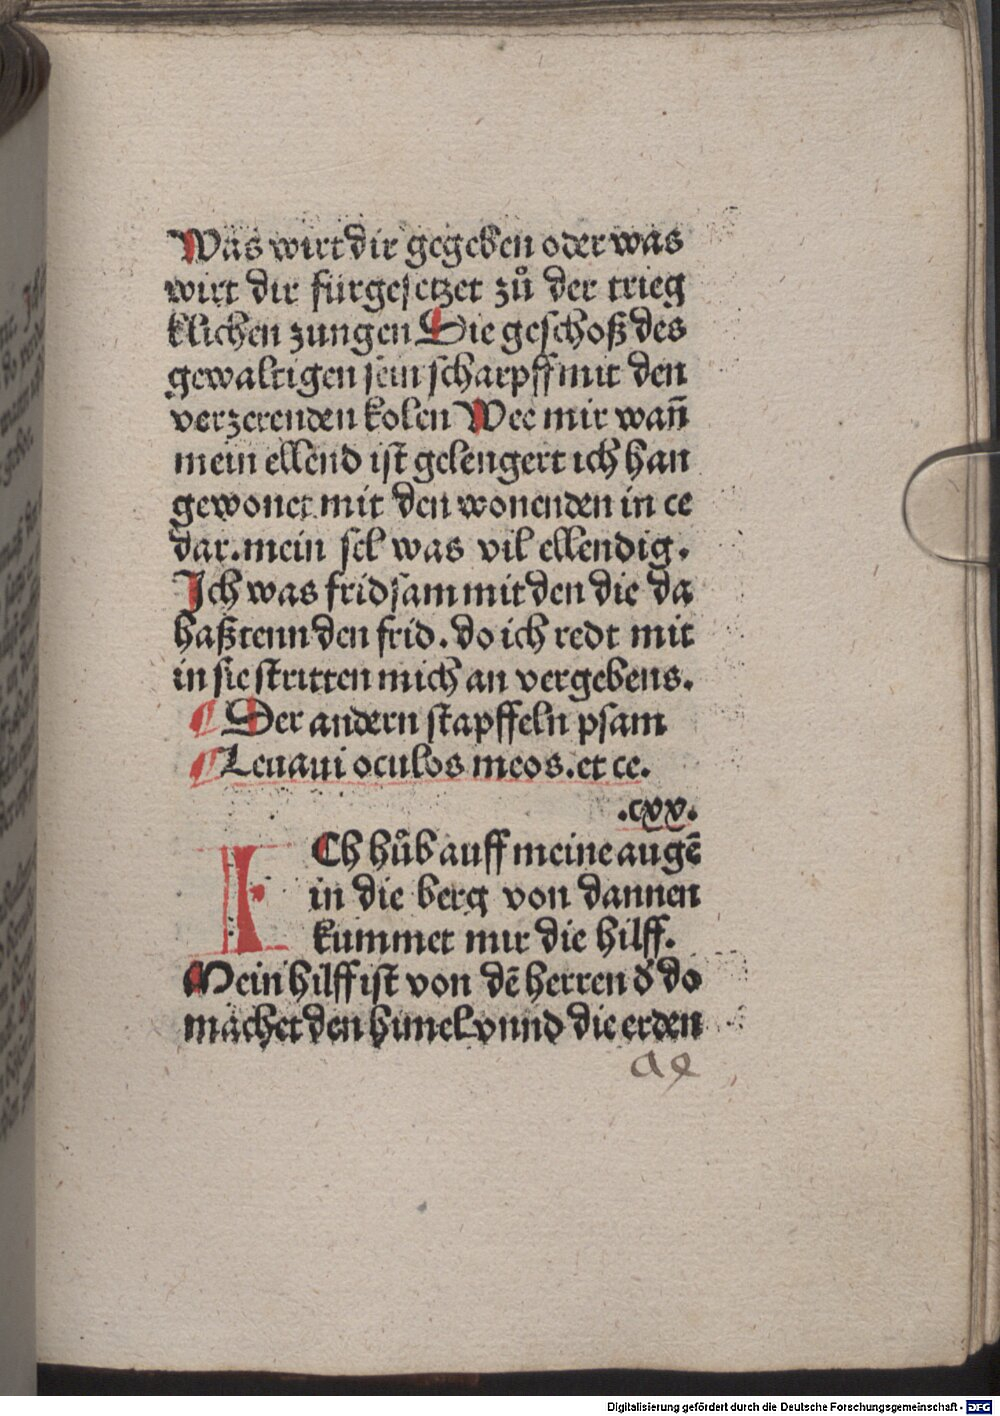 Was wirt dir gegeben oder was
wirt dir fürgesetzet zů der trieg
klichen zungen Die geschoß des
gewaltigen sein scharpff mit den
verzerenden kolen Wee mir wañ
mein ellend ist gelengert ich han
gewonet mit den wonenden in ce
dar. mein sel was vil ellendig.
Ich was fridsam mit den die da
haßtenn den frid. do ich redt mit
in sie stritten mich an vergebens.
¶ Der andern stapffeln psam
¶ Leuaui oculos meos. et ce.
.cxv.
ICh hůb auff meine augē
in die berg von dannen
kummet mir die hilff.
Mein hilff ist von dē herren d̄ do
machet den himel vnnd die erden
Digitalisierung gefördert durch die Deutsche Forschungsgemeinschaft - DFG